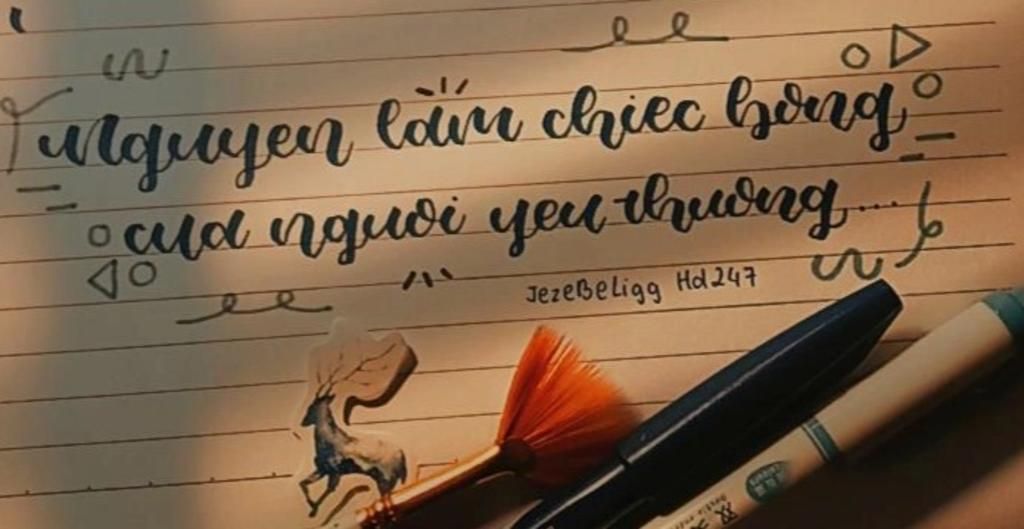 Nguyen làm chiec bong
cua nguoi yeu thuong...
JezeBeligg Hd247